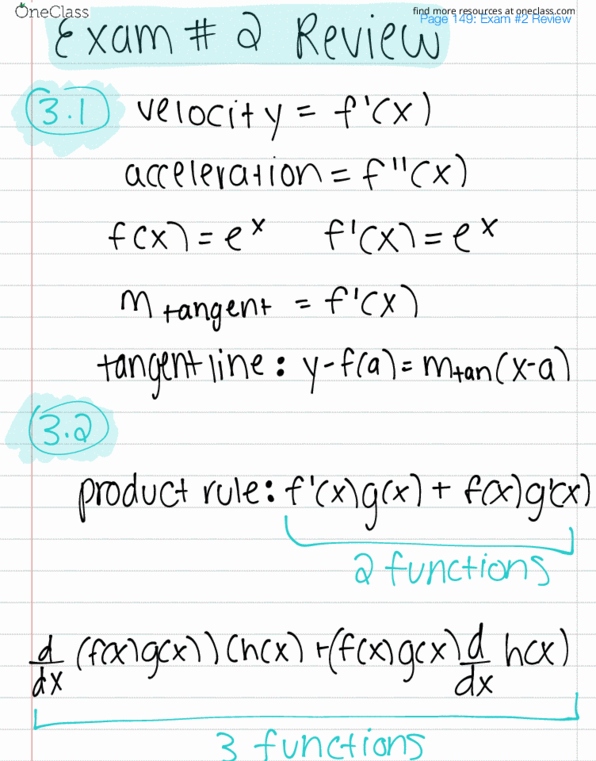 OneClass
find more resources at oneclass.com
Page 149: Exam #2 Review
Exam # 2 Review
3.1 velocity = f'(x)
acceleration = f"(x)
f(x) = e^x f'(x) = e^x
m tangent = f'(x)
tangent line : y-f(a) = mtan(x-a)
3.2
product rule: f'(x)g(x) + f(x)g'(x)
2 functions
d/dx (f(x)g(x))(h(x) + (f(x)g(x) d/dx h(x)
3 functions